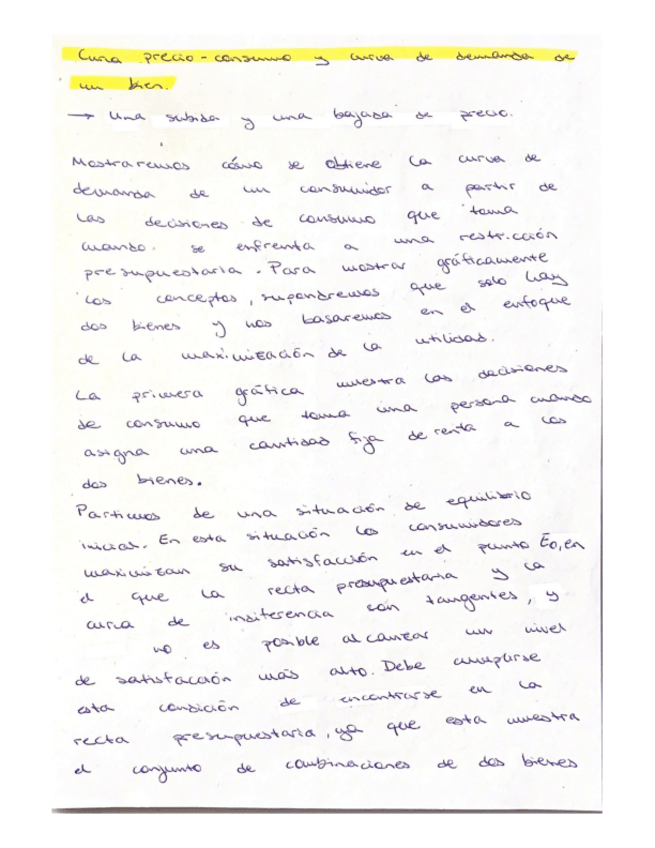 Curva precio-consumo y curva de demanda de
un bien.
→ Una subida y una bajada de precio.
Mostraremos cómo se obtiene la curva de
demanda de un consumidor a partir de
las decisiones de consumo que toma
cuando se enfrenta a una restricción
presupuestaria. Para mostrar gráficamente
los conceptos, supondremos que solo hay
dos bienes y nos basaremos en el enfoque
de la maximización de la utilidad.
La primera gráfica muestra las decisiones
de consumo que toma una persona cuando
asigna una cantidad fija de renta a los
dos bienes.
Partimos de una situación de equilibrio
inicial. En esta situación los consumidores
maximizan su satisfacción en el punto Eo, en
el que la recta presupuestaria y la
curva de indiferencia son tangentes, y
no es posible alcanzar un nivel
de satisfacción más alto. Debe cumplirse
esta condición de encontrarse en la
recta presupuestaria, ya que esta muestra
el conjunto de combinaciones de dos bienes